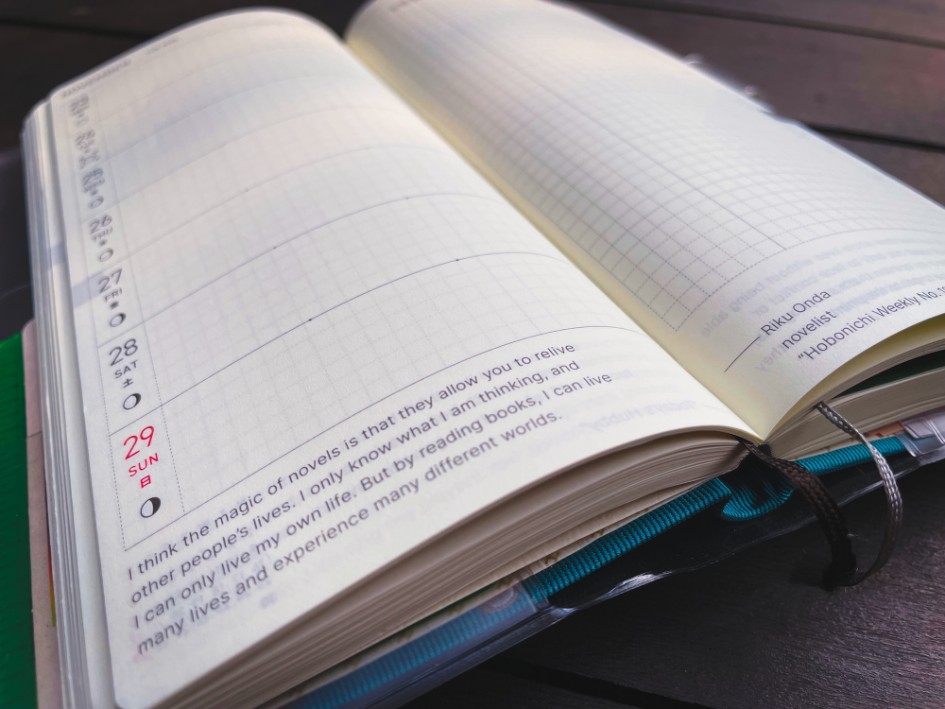 November
26
THU
木
27
FRI
金
28
SAT
土
29
SUN
日
I think the magic of novels is that they allow you to relive
other people's lives. I only know what I am thinking, and
I can only live my own life. But by reading books, I can live
many lives and experience many different worlds.
Riku Onda
novelist
"Hobonichi Weekly No.